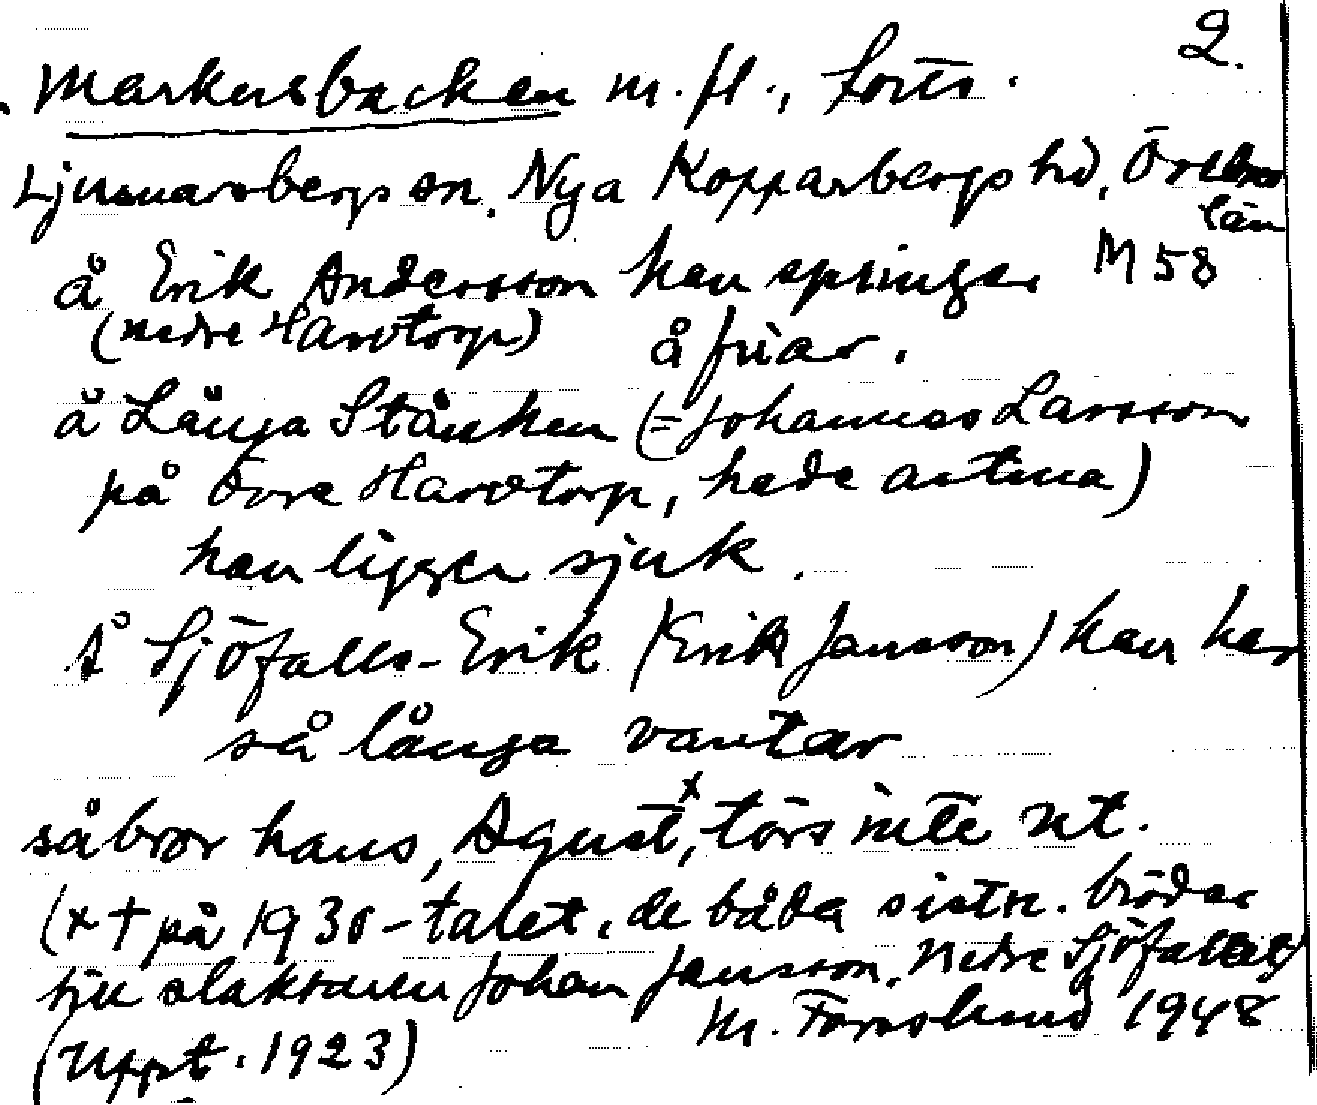 2.
Markusbacken m. fl., forts.
Ljusnarsbergs sn. Nya Kopparbergs hd, Örebro
län
M 58
å Erik Andersson han springer
(nedre Havtorp) å friar.
å Långa Stånken (= Johannes Larsson
på övre Havtorp, hade astma)
han ligger sjuk.
Å Sjöfalls-Erik (Erik Jansson) han har
så långa vantar
såbror hans, Agust x, törs inte ut.
(x † på 1930-talet. de båda sistn. bröder
till slaktaren Johan Jansson. Nedre Sjöfallet)
(Uppt. 1923) M. Forslund 1948